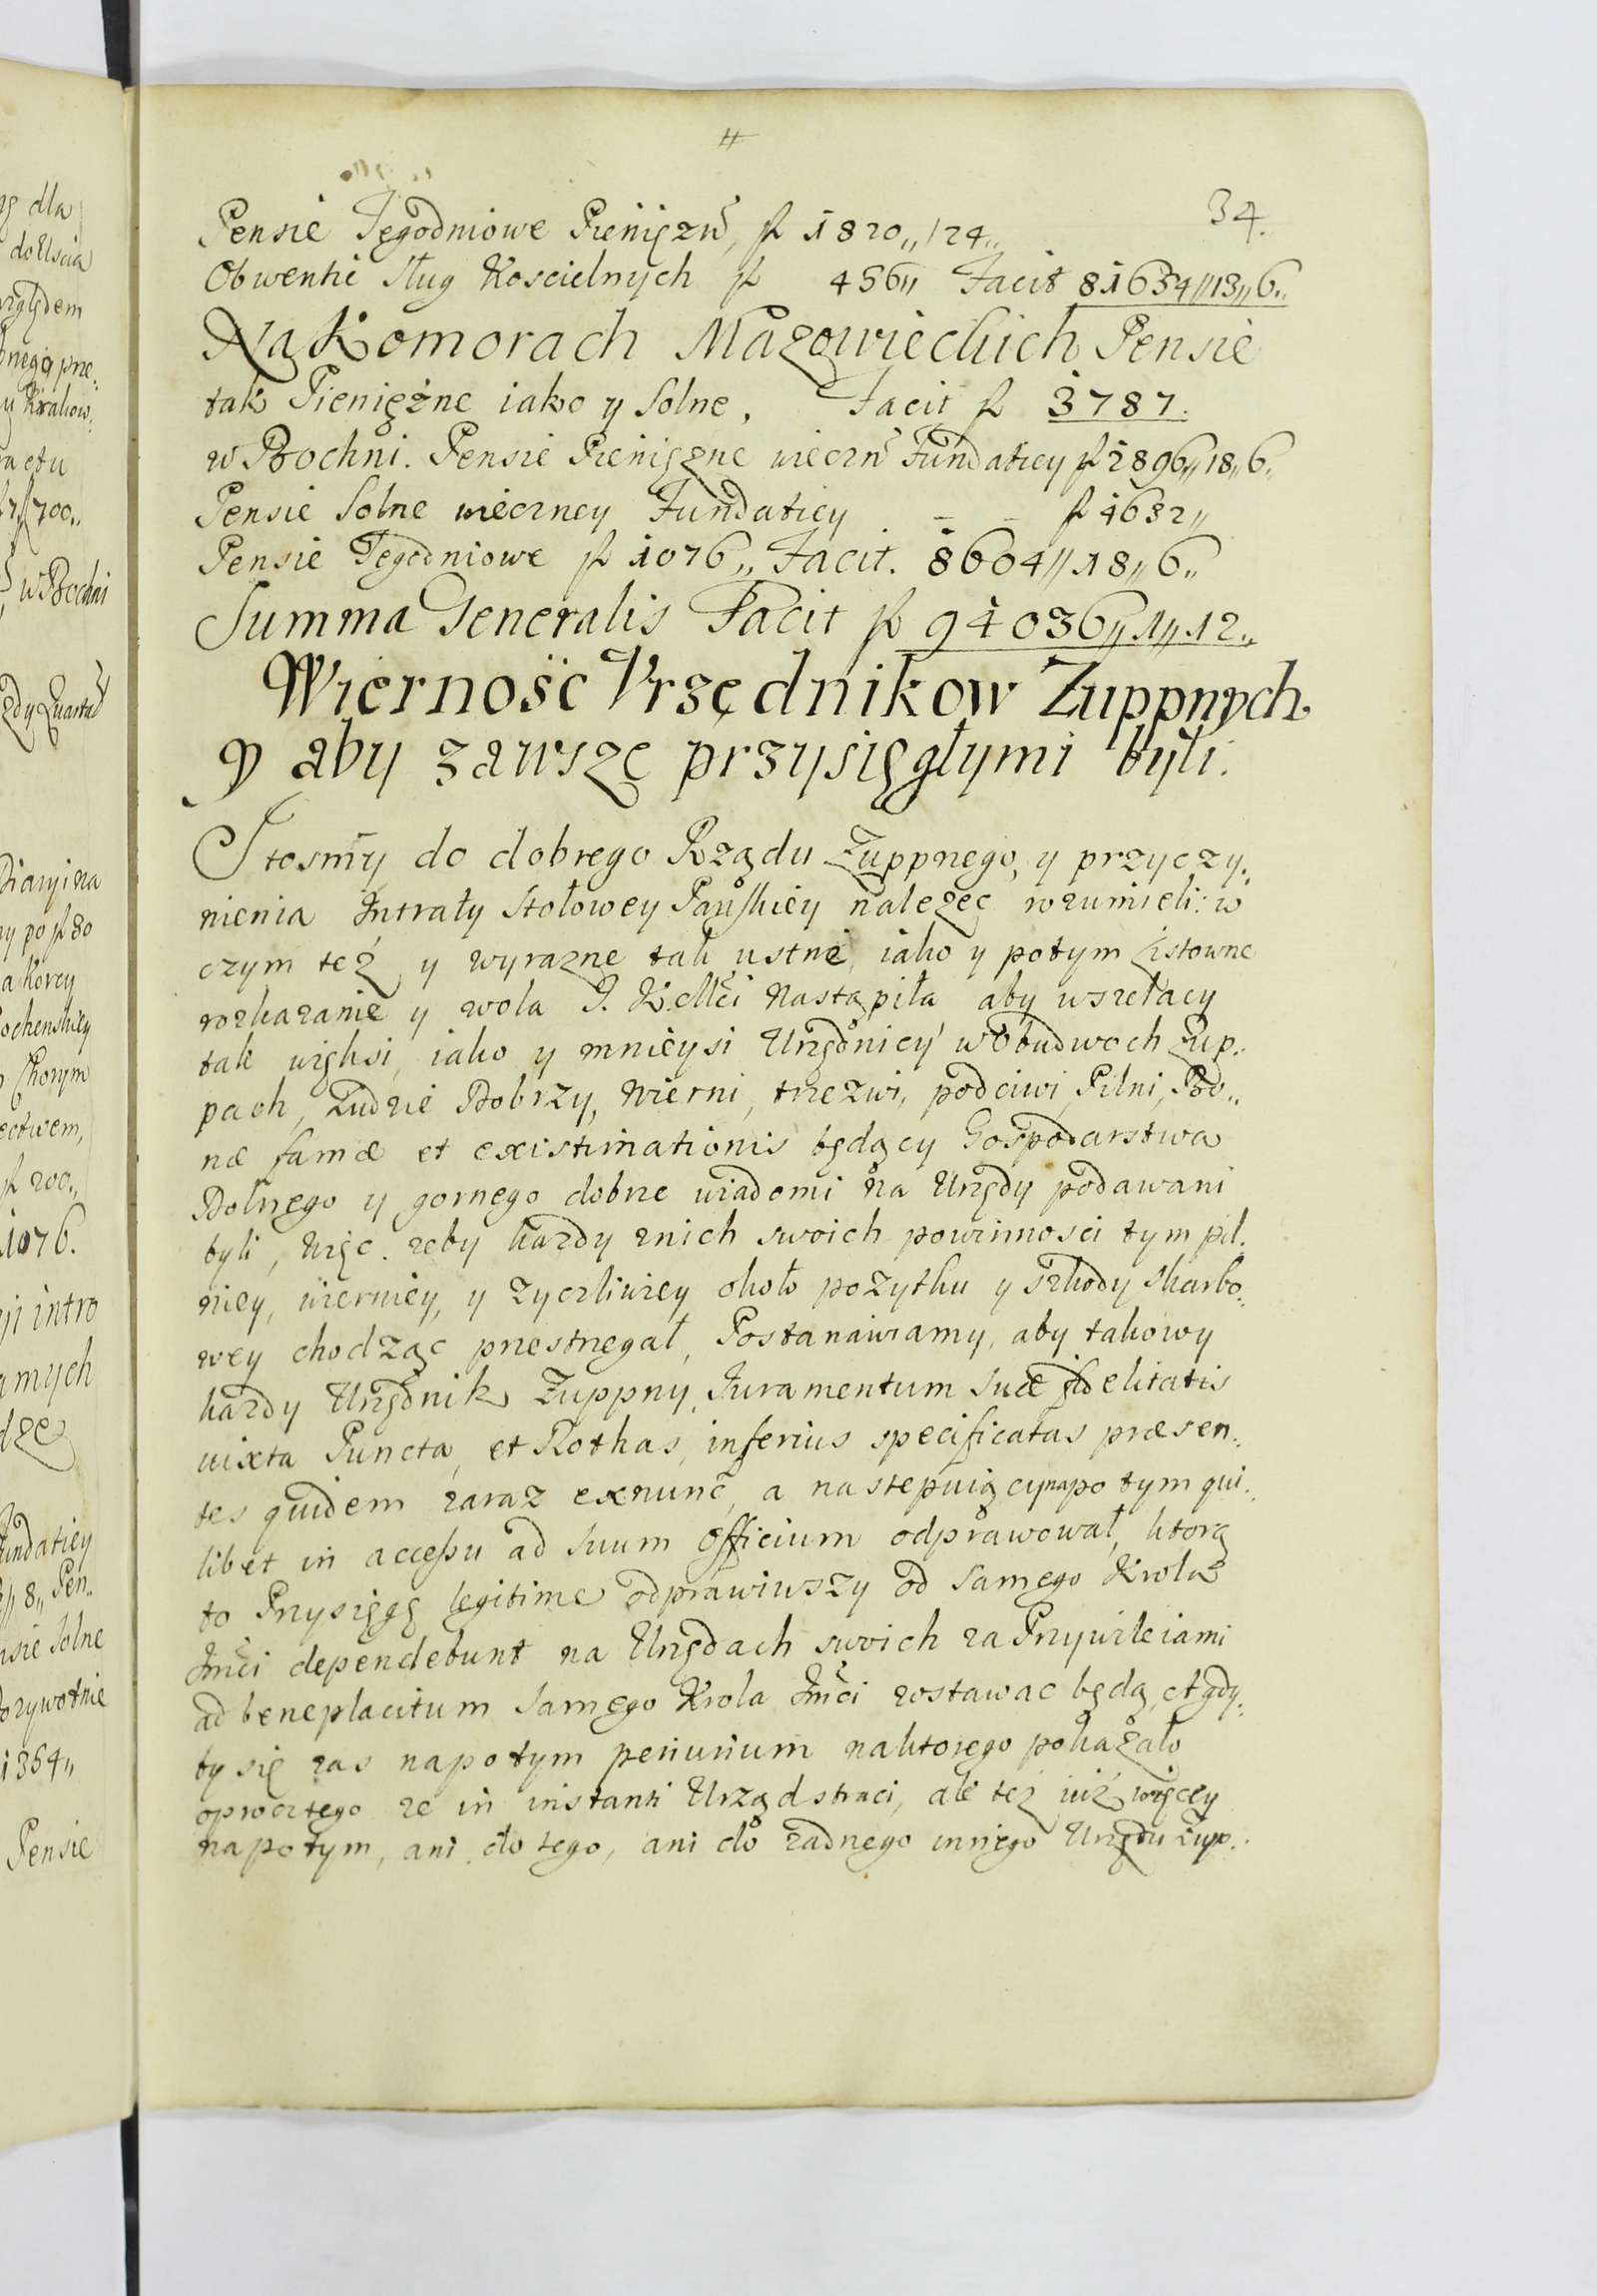 34.
Pensie Tegodniowe Pieniężn, fl 1820,, /24,,
Obwentie Sług Koscielnych fl 456,, Facit 81634,,13,,6,,
Na Komorach Mazowieckich Pensie
tak Pieniężne iako y Solne, Facit fl 3787.
w Bochni. Pensie Pieniężne wieczn Fundatiey fl 2896,,18,,6,,
Pensie Solne wieczney Fundatiey – – fl 4632,,
Pensie Tegodniowe fl 1076,, Facit. 8604,,18,,6,,
Summa Generalis Facit fl 94036,,1,,12,,
Wiernośc Vrzędnikow Zuppnych
y aby zawsze przysięgłymi byli.
Itosmy do dobrego Rządu Zuppnego, y przyczy.
nienia Intraty Stołowey Pańskiey nalezec rozumieli: w
czym też y wyrazne tak ustne, iako y potym listowne
rozkazanie y wola J. K. Mći nastąpiła aby wszelacy
tak więksi, iako y mnieysi Urzędnicy w Obudwoch Zup,,
pach, Ludzie Dobrzy, Wierni, trzezwi, podciwi, Pilni, Bo,,
næ famæ et existimationis będący Gospodarstwa
Dolnego y gornego dobrze wiadomi na Urzędy podawani
byli, więc zeby kazdy znich swoich powinnosci tym pil.
niey, wierniey, y zyczliwiey około pozytku y szkody skarbo,,
wey chodząc przestrzegał, Postanawiamy, aby takowy
kazdy Urzędnik Zuppny, Juramentum suæ fidelitatis
iuxta Puncta, et Rothas, inferius specificatas præsen,,
tes quidem zaraz exnunc, a nastepuiący napotym qui,,
libet in accessu ad suum officium odprawował, ktorą
to Przysięgę legitime odprawiwszy od Samego Krola
Jmći dependebunt na Urzędach swoich za Przywileiami
ad beneplacitum Samego Krola Jmći zostawac będą, et gdy.
by się zas napotym periurium naktorego pokazało
oprocz tego ze in instanti Urząd straci, ale też iuż więcey
napotym, ani do tego, ani do zadnego innego Urzędu Zup..